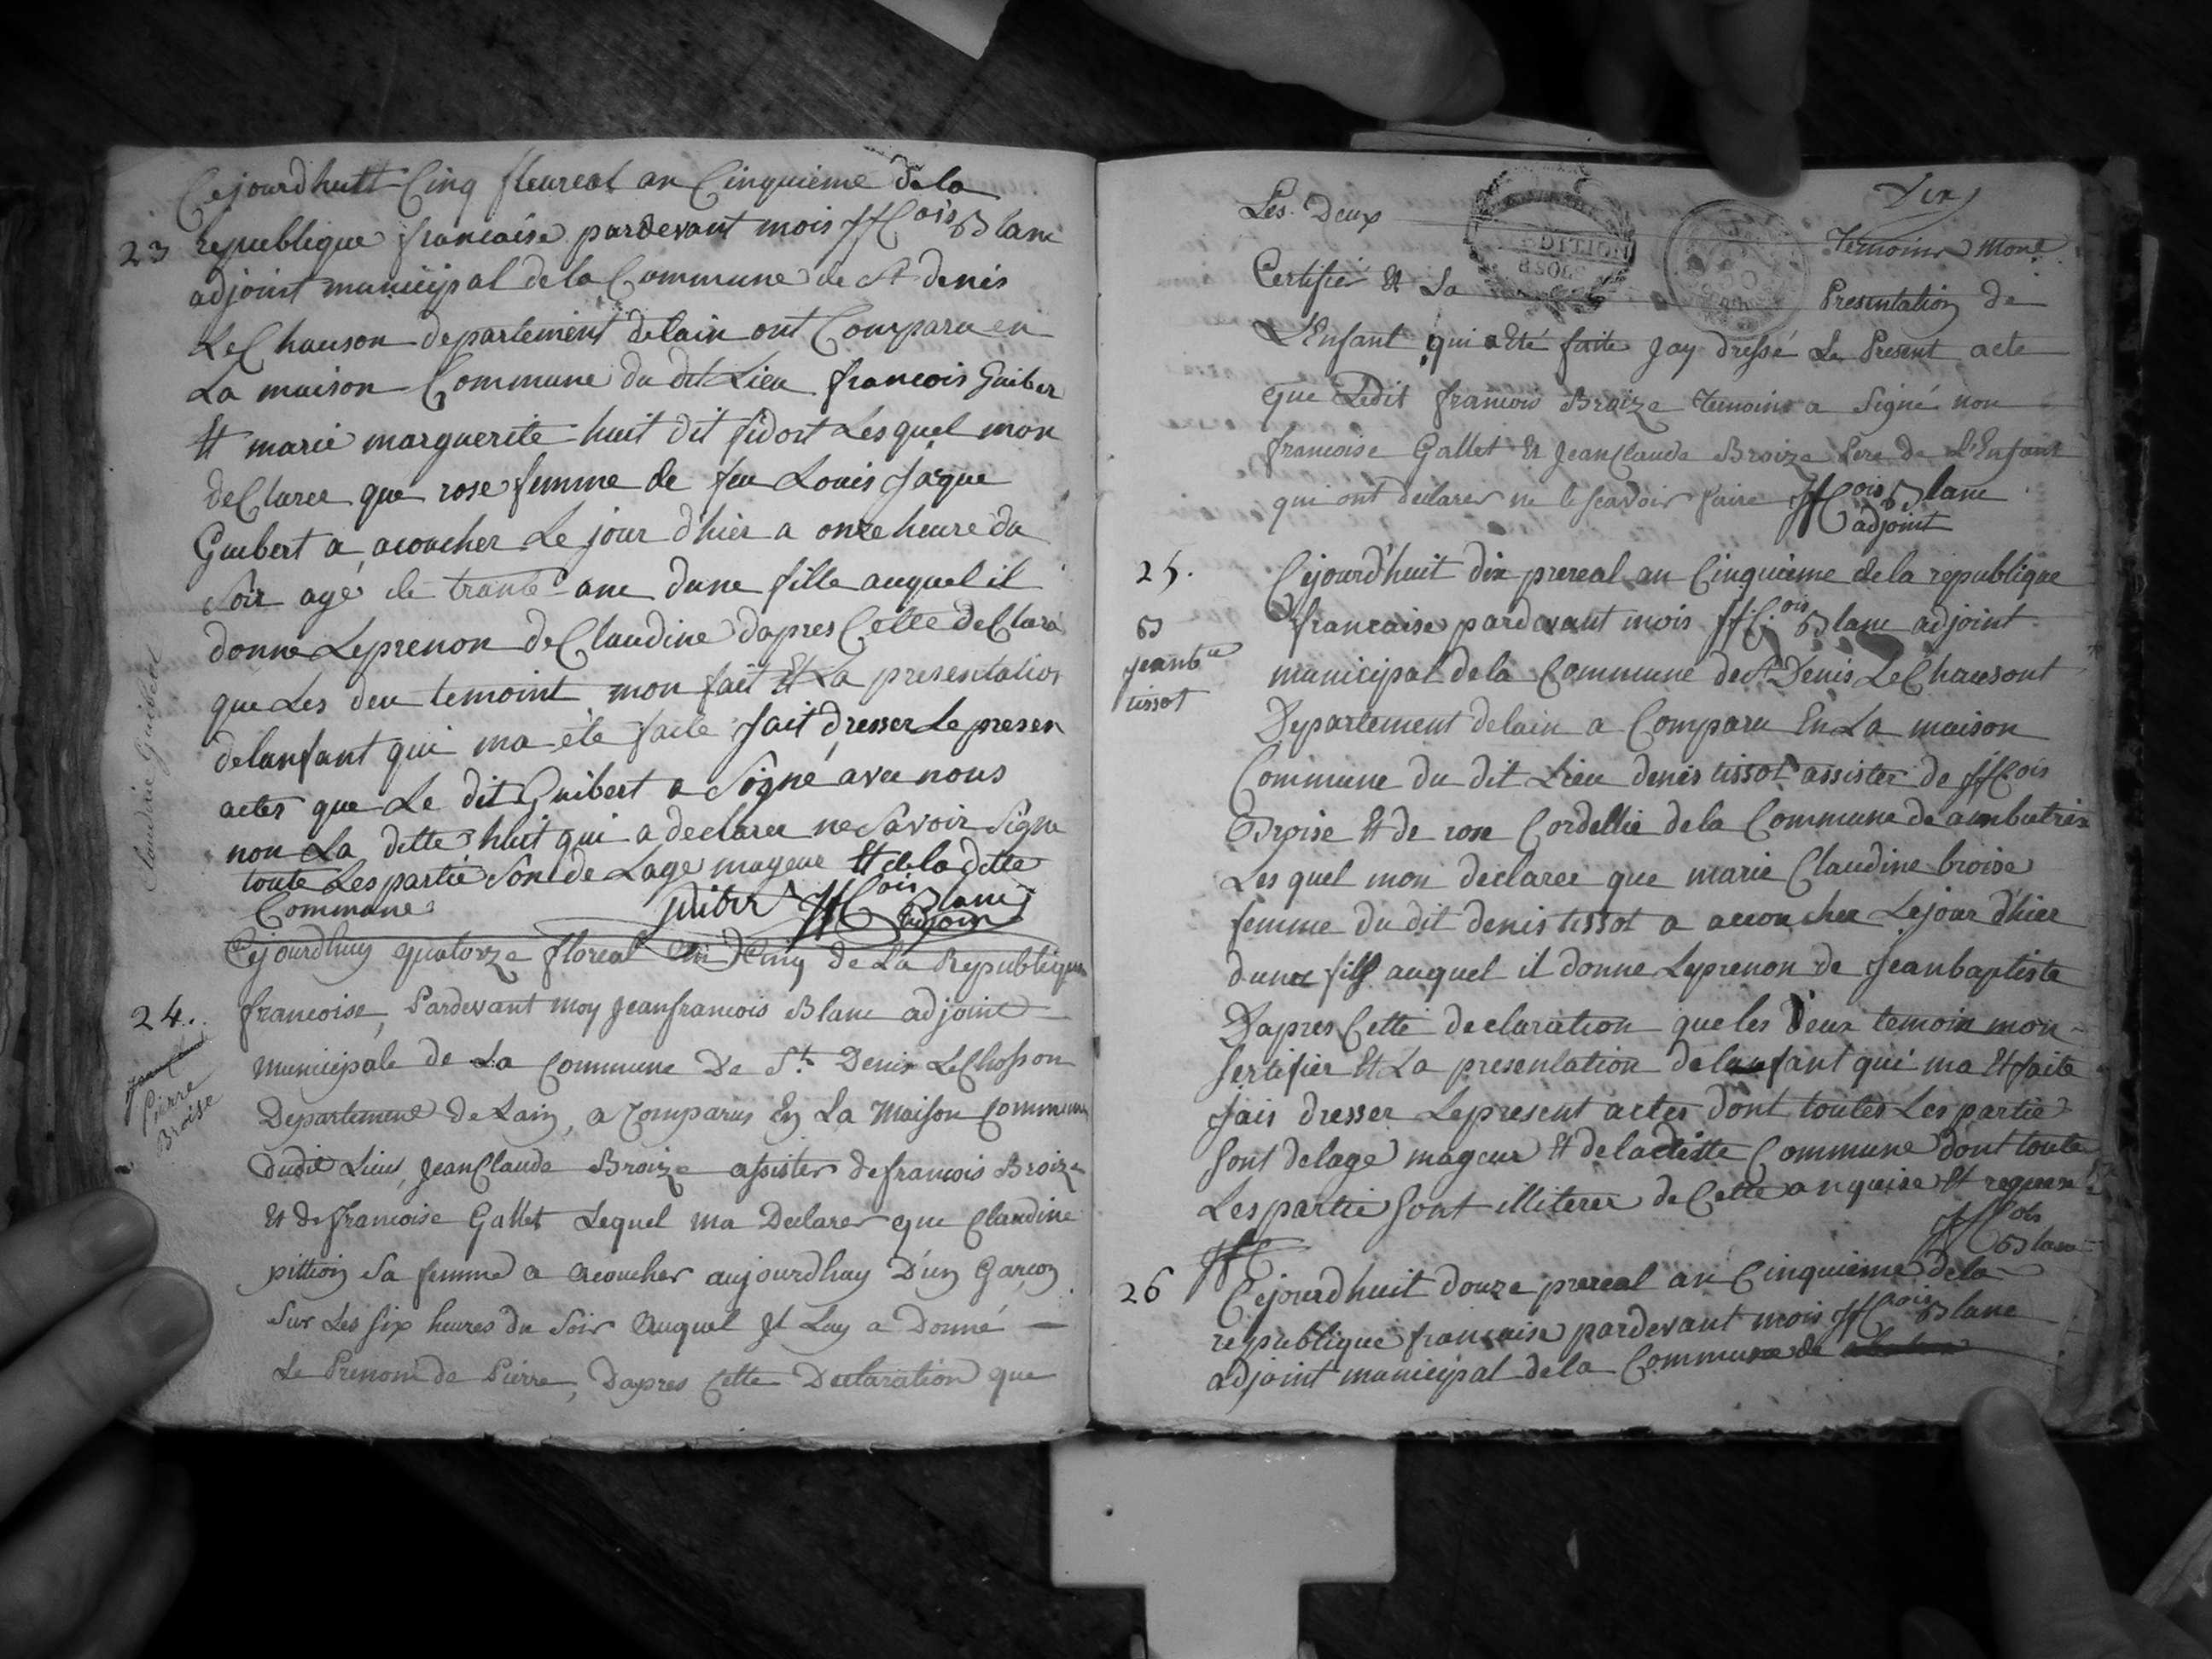 Cejourdhuit Cinq fleureal an Cinquieme dela
23 republique francaise pardevant mois JfCois Blanc
adjoint municipal dela Commune de St denis
Le Chauson departement delain ont Comparu en
La maison Commune du dit Lieu francois Guiber
Et marie marguerite huit dit fidort Lesquel mon
deClaree que rose femme de feu Louis Jaque
Guibert a acoucher Le jour d'hier a onze heure du
Soir agé de trante ane dune fille auquel il
donne Leprenon deClaudine dapres Cette deClara
que Les deu temoint mon fait Et La presentation
delanfant qui ma été faite fait dresser Le presen
actes que Le dit Guibert a Signé avec nous
non La ditte huit qui a declaree ne Savoir Signe
toute Les partie Son de Lage mageur Et de la ditte
Commune
Claudine Guibert
guiber JfCois Blanc
adjoin
Cejourdhuy quatorze floreal an Cinq de La Republique
24. francoise, Pardevant moy Jeanfrancois Blanc adjoint
municipale de La Commune De St Denis LeChosson
Pierre
Broise
Departement de Lain, a Comparus En La Maison Commune
dudit Lieu, JeanClaude Broize assister defrancois Broize
Et de francoise Gallet Lequel ma Declarer que Claudine
pittion Sa femme a acoucher aujourdhuy D'un Garcon
Sur Les six heures du Soir auquel Jl Luy a Donné
Le Prenom de Pierre, Dapres Cette Declaration que
Les Deux Temoins mont
Certifié Et La Presentation de
L'Enfant qui a Eté faite Jay dressé Le Present acte
que Ledit francois Broize temoins a Signé non
francoise Gallet Et JeanClaude Broize Pere de L'Enfant
qui ont declarer ne le scavoir faire JfCois Blanc
adjoint
25. Cejourd'huit dix prereal an Cinquieme dela republique
B francaise pardevant mois JfC.ois Blanc adjoint
jeanbte
tissot
municipal dela Commune deSt Denis LeChausont
Departement delain a Comparu En La maison
Commune du dit Lieu denis tissot assister de JfCois
Broise Et de rose Cordellie dela Commune de ambutrix
Les quel mon declaree que marie Claudine broise
femme du dit denis tissot a accoucher Lejour d'hier
dune fils auquel il donne Leprenon de Jeanbaptiste
Dapres Cette declaration que les deux temoin mon
Sertifier Et La presentation delanfant qui ma Et faite
Jais dresser Lepresent actes dont toutes Les partie
Sont delage mageur Et deladitte Commune dont toute
Les partie Sont illiterer de Cette anqueise Et requise
JfCois
Blanc
JfC
26 Cejourdhuit douze prereal an Cinquieme dela
republique francaise pardevant mois JfCois Blanc
adjoint municipal dela Commune de